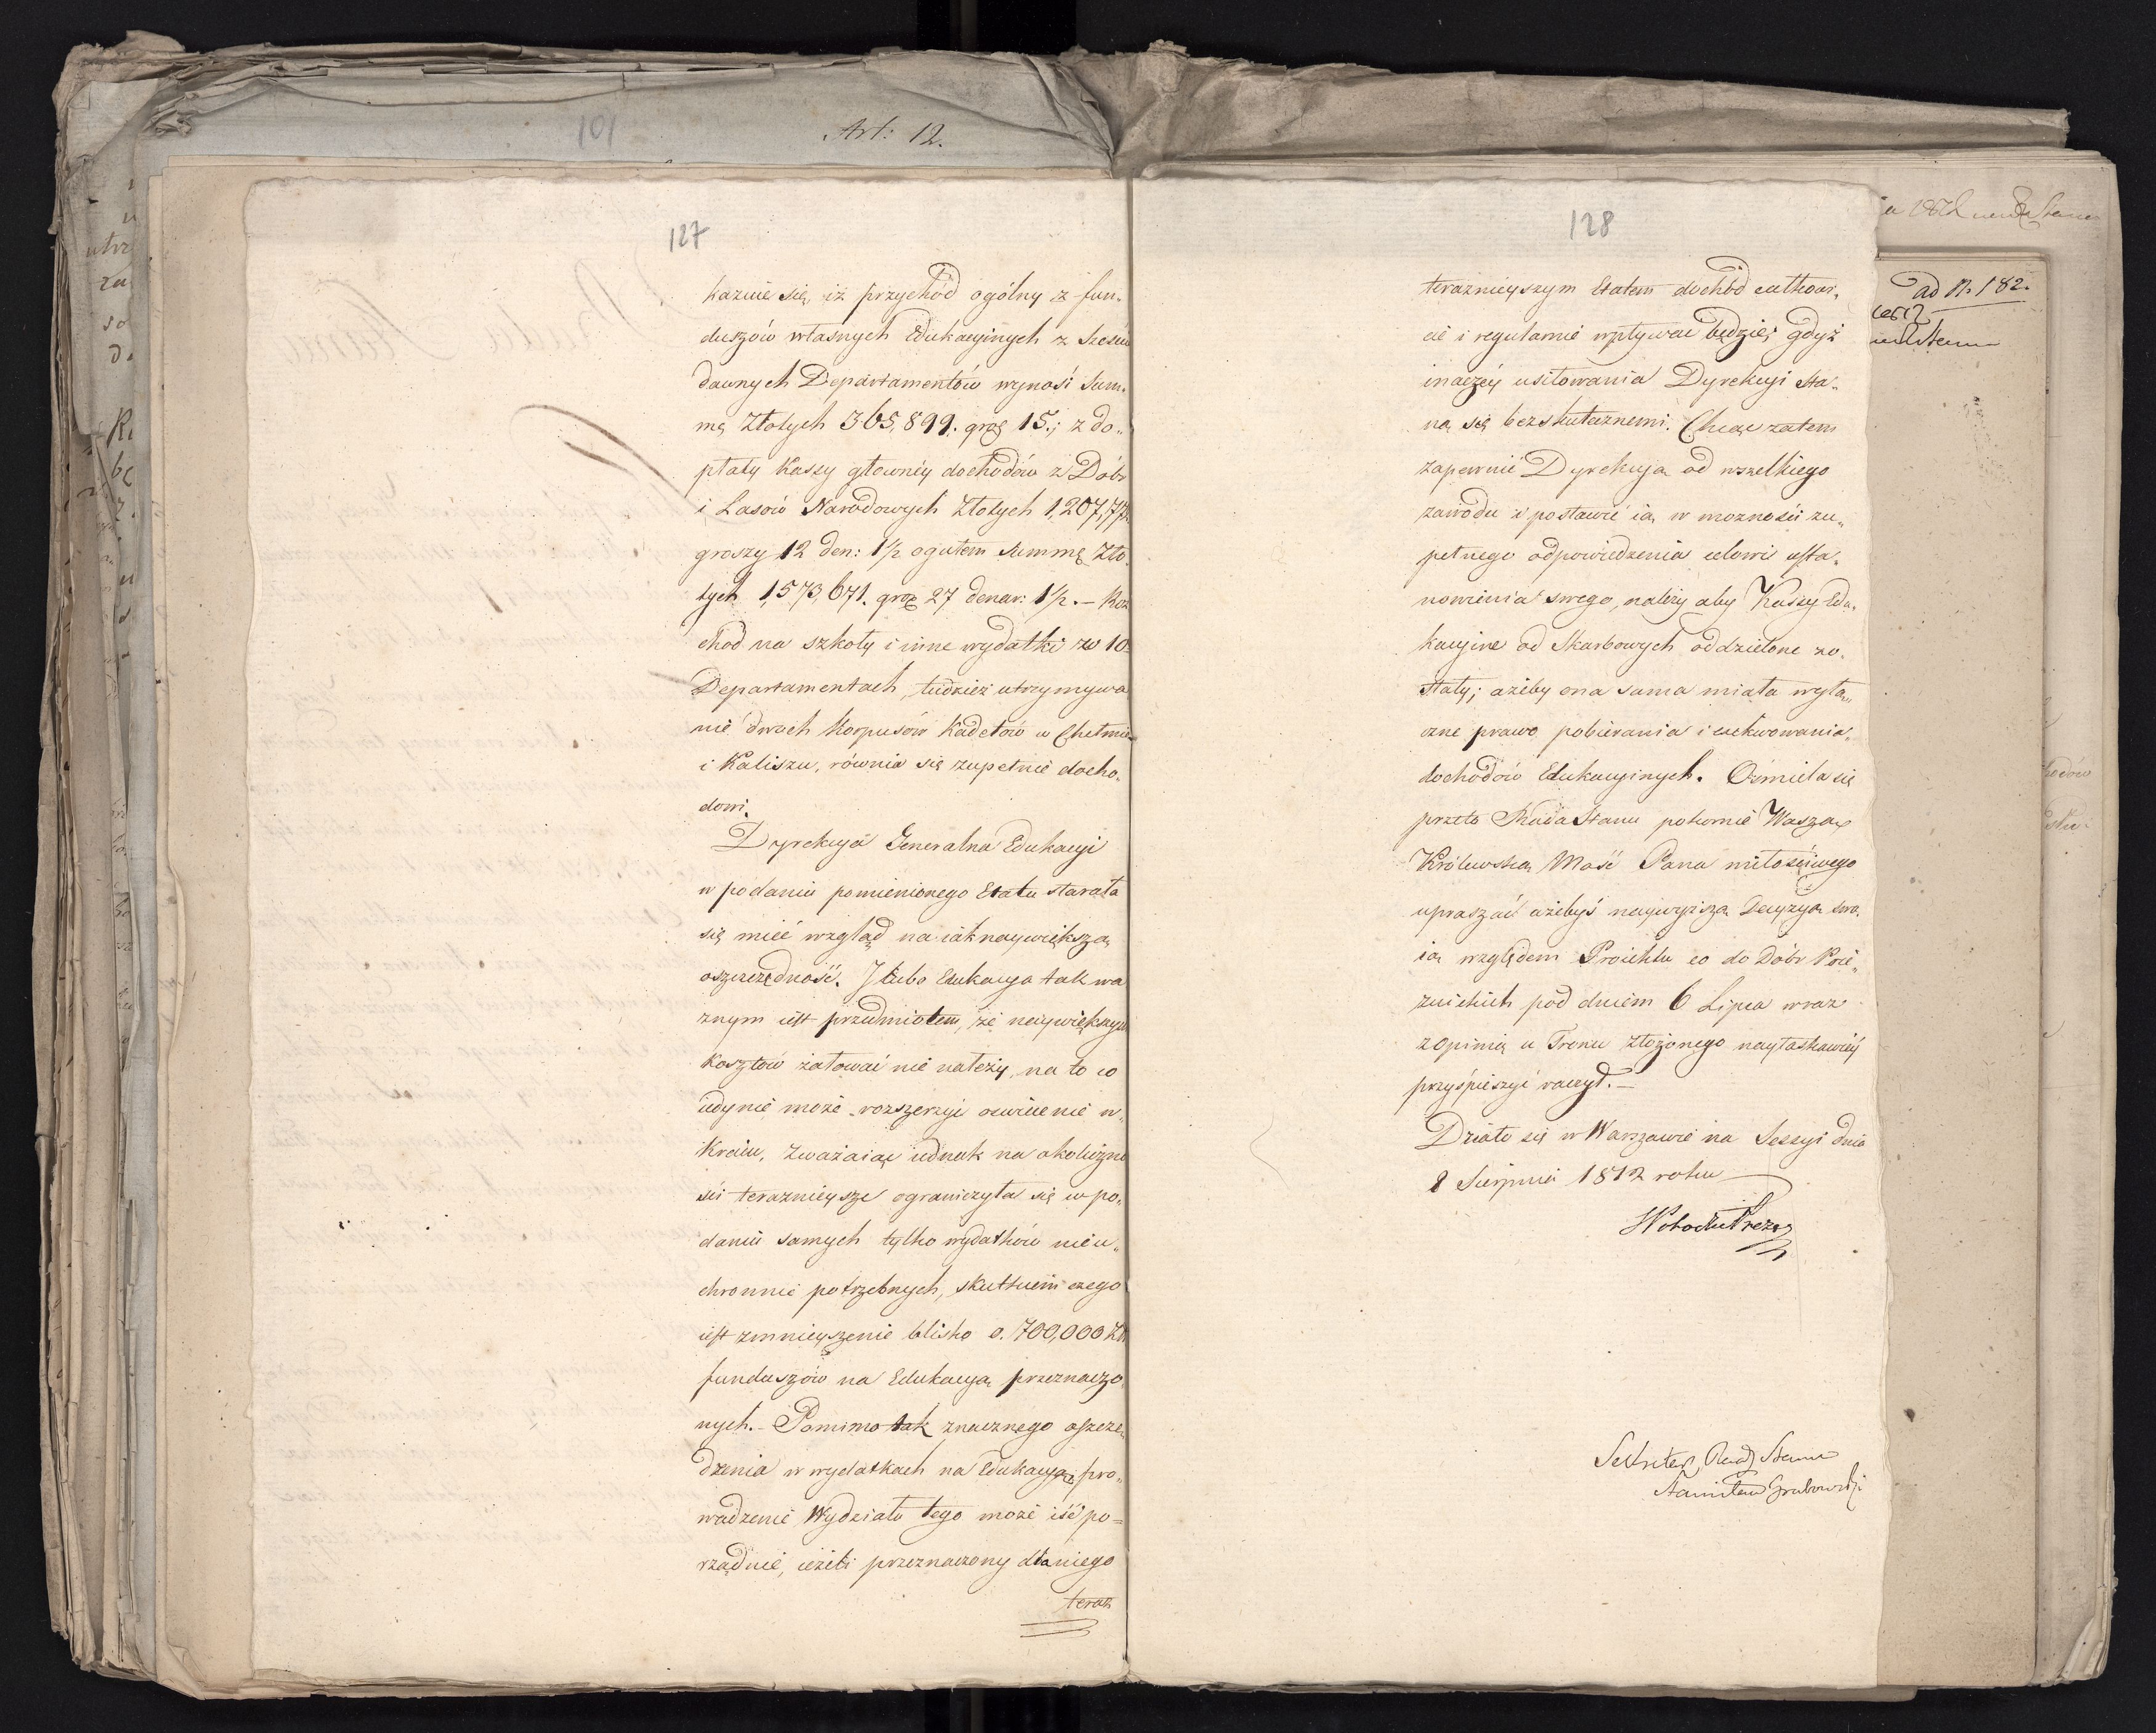 101
Art: 12.
127
kazuie się, iż przychód ogólny z fun„
duszów własnych Edukacyinych z Sześciu
dawnych Departamentów wynosi Sum„
mę Złotych 365,899. grosz 15.; z do„
płaty Kassy głowney dochodów z Dóbr
i Lasów Narodowych Złotych 1,207,77
groszy 12 den: 1½ ogułem Summę Zło„
tych 1,573,671. grosz 27 denar: 1½. — Roz
chod na szkoły i inne wydatki w 10
Departamentach, tudzież utrzymywa
nie dwoch Korpusów Kadetów w Chełmie
i Kaliszu, równia się zupełnie docho„
dowi.
Dyrekcya Generalna Edukacyi
w podaniu pomienionego Etatu starała
się mieć wzgląd na iak naywiększą
oszczędność. I lubo Edukacya tak wa
żnym iest przedmiotem, że naywiększych
Kosztów żałować nie należy, na to co
iedynie może rozszerzyć oswiecenie w„
Kraiu, Zważaiąc iednak na okoliczno
ści teraznieysze ograniczyła się w po„
daniu samych tylko wydatków nieu„
chronnie potrzebnych, skutkiem czego
iest zmnieyszenie blisko o. 700,000 Zł
funduszów na Edukacyą przeznaczo„
nych. – Pomimo tak znacznego oszczę„
dzenia w wydatkach na Edukacyą, pro„
wadzenie Wydziału tego może iść po=
rządnie, ieżeli przeznaczony dla niego
teraz
128
teraznieyszym Etatem dochód całkowi„
cie i regularnie wpływać będzie; gdyż
inaczéy usiłowania Dyrekcyi sta„
ną się bezskutecznemi. Chcąc zatem
zapewnić Dyrekcyą od wszelkiego
zawodu i postawić ią w możności zu„
pełnego odpowiedzenia celowi usta„
nowienia swego, należy aby Kassy Edu„
kacyine od Skarbowych oddzielone zo„
stały; ażeby ona sama miała wyłą„
czne prawo pobierania i exekwowania„
dochodów Edukacyinych. Ośmiela się
przeto Rada Stanu pokornie Waszą
Królewską Mość Pana miłościwego
upraszać ażebyś naywyższą Decyzyą swo„
ią względem Proiektu co do Dóbr Poie„
zuickich pod dniem 6 Lipca wraz
z opinią u Tronu złożonego nayłaskawiéy
przyśpieszyć raczył. —
Działo się w Warszawie na Sessyi dnia
8 Sierpnia 1812 roku
Sekretarz Rady Stanu
Stanisław Grabowski
ad N. 182.